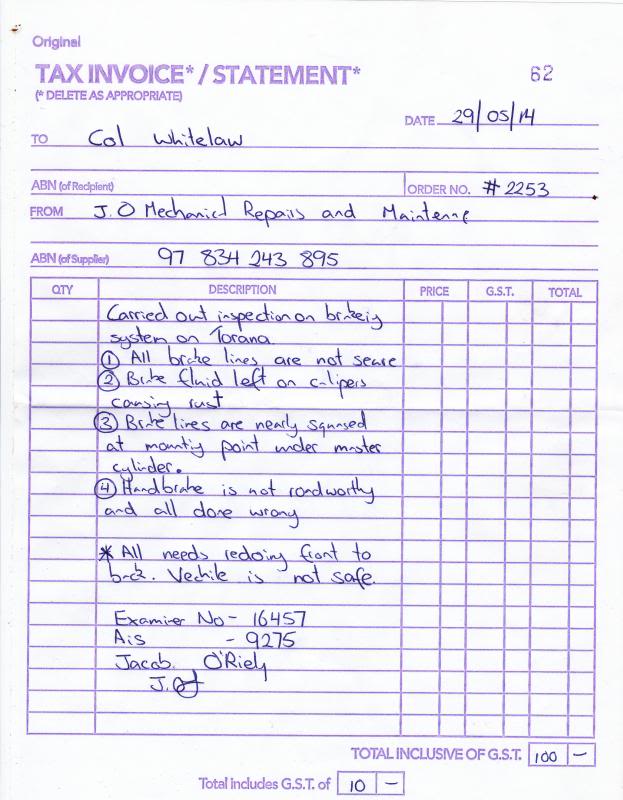 Original
TAX INVOICE* / STATEMENT*
62
(* DELETE AS APPROPRIATE)
DATE 29/05/14
TO Col Whitelaw
ABN (of Recipient)
ORDER NO. #2253
FROM J.O Mechanicl Repairs and Maintenne
ABN (of Supplier) 97 834 243 895
QTY DESCRIPTION PRICE G.S.T. TOTAL
Carried out inspection on brakeig
system on Torana.
① All brake lines are not seure
② Brake fluid left on calipers
causing rust
③ Brake lines are nearly squased
at mountig point under master
cylinder.
④ Handbrake is not roadworthy
and all done wrong
* All needs redoing front to
back. Vechile is not safe.
Examiner No - 16457
Ais - 9275
Jacob O'Riely
TOTAL INCLUSIVE OF G.S.T. 100 -
Total includes G.S.T. of 10 -